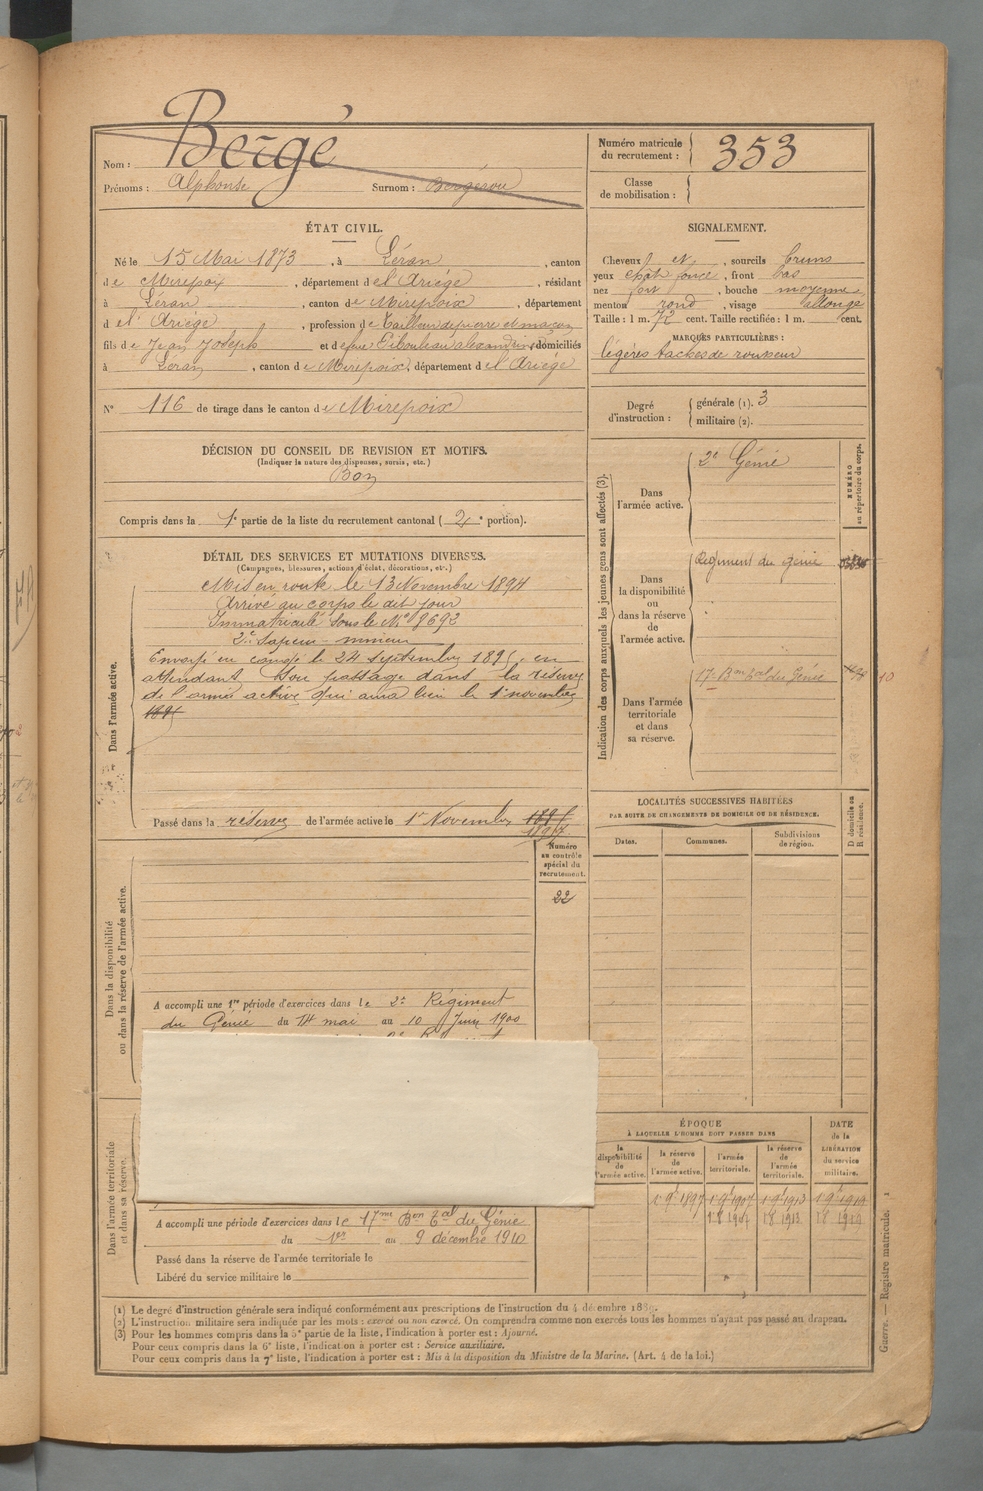 Nom : Bergé
Prénoms : Alphonse Surnom : Bergérou
Numéro matricule du recrutement : 353
Classe de mobilisation :
ÉTAT CIVIL.
Né le 15 Mai 1873, à Léran, canton
de Mirepoix, département de l'Ariége, résidant
à Léran, canton de Mirepoix, département
d el' Ariége, profession de tailleur de pierre et maçon
fils de Jean Joseph et de feue alexandrine, domiciliés
à Léran, canton de Mirepoix, département de l'Ariége
N° 116 de tirage dans le canton de Mirepoix
SIGNALEMENT.
Cheveux et, sourcils bruns
yeux chat. foncé, front bas
nez fort, bouche moyenne
menton rond, visage allongé
Taille : 1 m. 72 cent. Taille rectifiée : 1 m. cent.
MARQUES PARTICULIÈRES :
légères taches de rousseur
Degré d'instruction : générale (1). 3
militaire (2).
DÉCISION DU CONSEIL DE REVISION ET MOTIFS.
(Indiquer la nature des dispenses, sursis, etc.)
Bon
Compris dans la 1e partie de la liste du recrutement cantonal (2e portion).
DÉTAIL DES SERVICES ET MUTATIONS DIVERSES.
(Campagnes, blessures, actions d'éclat, décorations, etc.)
Dans l'armée active.
Mis en route le 13 Novembre 1894
Arrivé au corps le dit jour
Immatriculé sous le N° 9692
2e Sapeur-mineur
Envoyé en congé le 24 septembre 1895, en
attendant son passage dans la réserve
de l'armée active qui aura lieu le 1er novembre
1895
Passé dans la réserve de l'armée active le 1er Novembre 1895
1897
Indication des corps auxquels les jeunes gens sont affectés (3).
Dans l'armée active.
2e Génie
NUMÉRO au répertoire du corps.
Dans la disponibilité ou dans la réserve de l'armée active.
Régiment du génie
Dans l'armée territoriale et dans sa réserve.
17e Bon Tal du Génie
10
LOCALITÉS SUCCESSIVES HABITÉES
PAR SUITE DE CHANGEMENTS DE DOMICILE OU DE RÉSIDENCE.
Dates. Communes. Subdivisions de région.
D domicile ou R résidence.
Numéro au contrôle spécial du recrutement.
22
Dans la disponibilité ou dans la réserve de l'armée active.
A accompli une 1re période d'exercices dans le 2e Régiment
du Génie du 14 mai au 10 Juin 1900
Dans l'armée territoriale et dans sa réserve.
A accompli une période d'exercices dans le 17me Bon Tal du Génie
du 1er au 9 décembre 1910
Passé dans la réserve de l'armée territoriale le
Libéré du service militaire le
ÉPOQUE
À LAQUELLE L'HOMME DOIT PASSER DANS
la disponibilité de l'armée active. la réserve de l'armée active. l'armée territoriale. la réserve de l'armée territoriale.
DATE de la LIBÉRATION du service militaire.
1 9b 1897 1 9b 1907 1 9b 1913 1 9b 1919
1 8 1907 1 8 1913 1 8 1919
(1) Le degré d'instruction générale sera indiqué conformément aux prescriptions de l'instruction du 4 décembre 1889.
(2) L'instruction militaire sera indiquée par les mots : exercé ou non exercé. On comprendra comme non exercés tous les hommes n'ayant pas passé au drapeau.
(3) Pour les hommes compris dans la 5e partie de la liste, l'indication à porter est : Ajourné.
Pour ceux compris dans la 6e liste, l'indication à porter est : Service auxiliaire.
Pour ceux compris dans la 7e liste, l'indication à porter est : Mis à la disposition du Ministre de la Marine. (Art. 4 de la loi.)
Guerre. — Registre matricule. 1